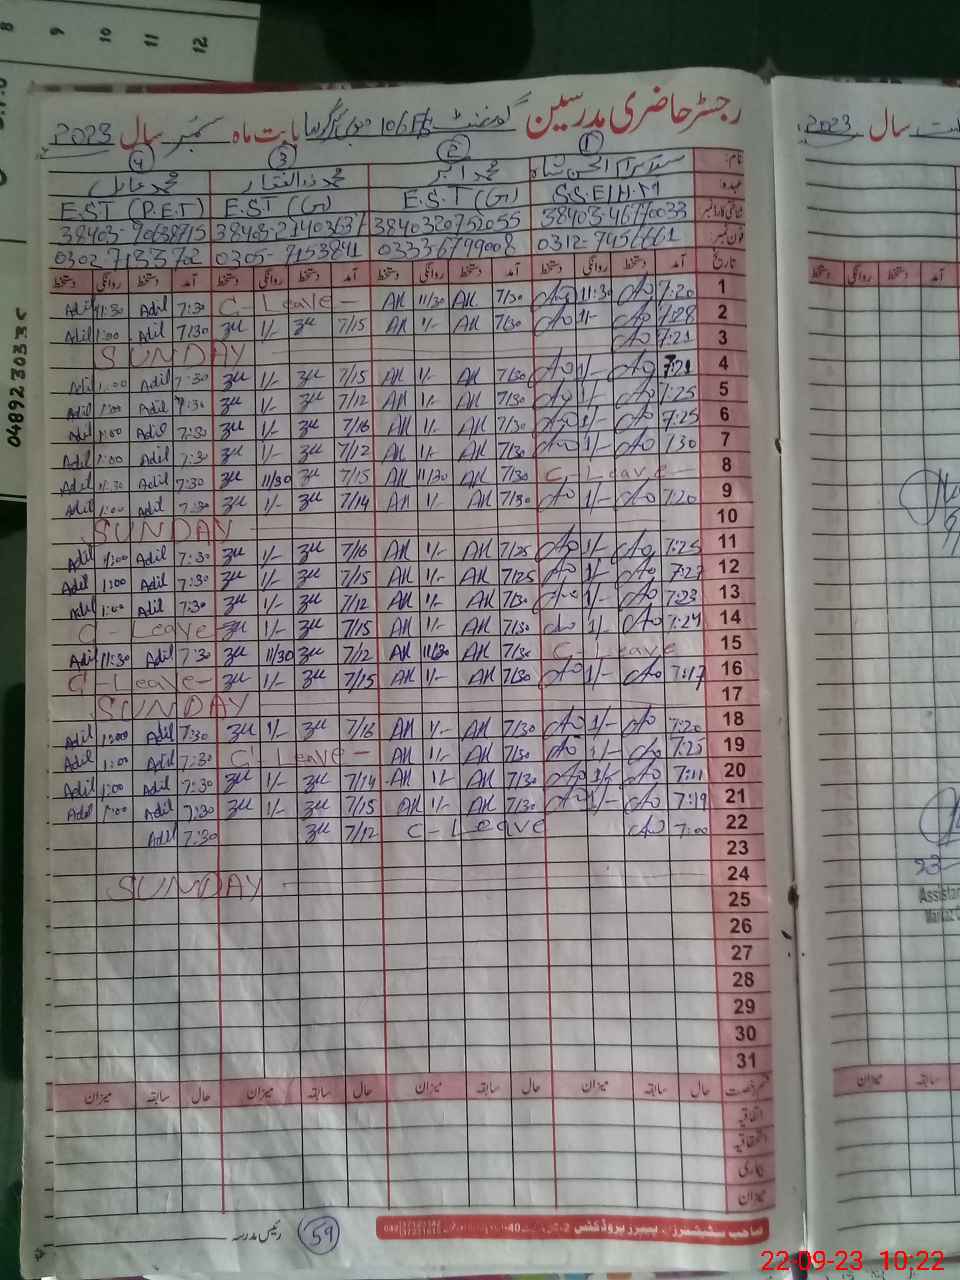 8 9 10 11 12
0489230336
رجسٹر حاضری مدرسین گورنمنٹ 10/SB بابت ماہ ستمبر سال 2023
سال 2023
① ② ③ ④
نام: محمد اکبر محمد ذوالفقار محمد عادل
عہدہ: S.S.E/H.M E.S.T (G) E.S.T (G) E.S.T (P.E.T)
شناختی کارڈ نمبر 38403-4677003-3 3840320752055 38403-21403637
فون نمبر: 0312-7456661 0333-6799008 0305-7153841 03027133702
تاریخ آمد دستخط روانگی دستخط آمد دستخط روانگی دستخط آمد دستخط روانگی دستخط آمد دستخط روانگی دستخط
1 7:20 11:30 7/30 AK 11/30 AK C-Leave- 7:30 Adil 11:30 Adil
2 7:28 1/- 7/30 AK 1/- AK 7/15 zu 1/- zu 7:30 Adil 1:00 Adil
3 7:21 SUNDAY
4 7:21 1/- 7/30 AK 1/- AK 7/15 zu 1/- zu 7:30 Adil 1:00 Adil
5 7:25 1/- 7/30 AK 1/- AK 7/12 zu 1/- zu 7:30 Adil 1:00 Adil
6 7:25 1/- 7/30 AK 1/- AK 7/16 zu 1/- zu 7:30 Adil 1:00 Adil
7 7:30 1/- 7/30 AK 1/- AK 7/12 zu 1/- zu 7:30 Adil 1:00 Adil
8 C-Leave- 7/30 AK 11/30 AK 7/15 zu 11/30 zu 7:30 Adil 11:30 Adil
9 7:20 1/- 7/30 AK 1/- AK 7/14 zu 1/- zu 7:30 Adil 1:00 Adil
10 SUNDAY
11 7:25 1/- 7/25 AK 1/- AK 7/16 zu 1/- zu 7:30 Adil 1:00 Adil
12 7:27 1/- 7/25 AK 1/- AK 7/15 zu 1/- zu 7:30 Adil 1:00 Adil
13 7:23 1/- 7/30 AK 1/- AK 7/12 zu 1/- zu 7:30 Adil 1:00 Adil
14 7:24 1/- 7/30 AK 1/- AK 7/15 zu 1/- zu C-Leave-
15 C-Leave 7/30 AK 11/30 AK 7/12 zu 11/30 zu 7:30 Adil 11:30 Adil
16 7:17 1/- 7/30 AK 1/- AK 7/15 zu 1/- zu C-Leave-
17 SUNDAY
18 7:20 1/- 7/30 AK 1/- AK 7/16 zu 1/- zu 7:30 Adil 1:00 Adil
19 7:25 1/- 7/30 AK 1/- AK C-Leave- 7:30 Adil 1:00 Adil
20 7:11 1/- 7/30 AK 1/- AK 7/14 zu 1/- zu 7:30 Adil 1:00 Adil
21 7:19 1/- 7/30 AK 1/- AK 7/15 zu 1/- zu 7:30 Adil 1:00 Adil
22 7:00 C-Leave 7/12 zu 7:30 Adil
23
24 SUNDAY
25
26
27
28
29
30
31
حال سابقہ میزان حال سابقہ میزان حال سابقہ میزان حال سابقہ میزان
اتفاقیہ
استحقاقیہ
بیماری
میزان
رئیس مدرسہ 59
صاحب سٹیشنرز، پیپرز پروڈکٹس
23
Assistan
Markaz C
22-09-23 10:22